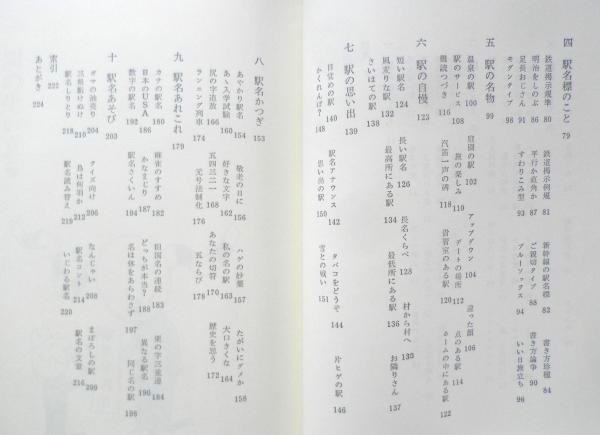 四　駅名標のこと　79
鉄道掲示規準　80　鉄道掲示例規　81　新幹線の駅名標　82　書き方珍種　84
明治をしのぶ　86　平行か直角か　87　ご親切タイプ　88　書き方論争　90
足長おじさん　91　すわりこみ型　93　ブルーソックス　94　いい日旅立ち　96
モダンタイプ　98
五　駅の名物　99
温泉の駅　100　庭園の駅　102　アップダウン　104　違った顔　106
駅のサービス　108　旅の楽しみ　110　デートの場所　112　点のある駅　114
難読つづき　116　汽笛一声の碑　118　貴賓室のある駅　120　ホームの中にある駅　122
六　駅の自慢　123
短い駅名　124　長い駅名　126　長名くらべ　128　村から村へ　130
風変りな駅　132　最高所にある駅　134　最低所にある駅　136　お隣りさん　137
さいはての駅　138
七　駅の思い出　139
目覚めの駅　140　駅名アナウンス　142　タバコをどうぞ　144　片ヒゲの駅　146
かくれんぼ？　148　思い出の駅　150　雪との戦い　151
八　駅名かつぎ　153
あやかり駅名　154　敬老の日に　156　ハゲの妙薬　157　たがいにダメか　158
あゝ入学試験　160　好きな文字　162　私の名の駅　163　大口きくな　164
尻の字追放　166　五四三二一　168　あなたの切符　170　歴史を思う　172
ランニング列車　174　元号法制化　176　五ならび　178
九　駅名あれこれ　179
カナの駅名　180　麻雀のすすめ　182　旧国名の連続　183　東の字三重連　184
日本のUSA　186　かなまじり　187　どっちが本当？　188　異なる駅名　190
数字の駅名　192　駅名さくいん　194　名は体をあらわさず　197　同じ名の駅　198
十　駅名あそび　203
ガマの油売り　204　クイズ向け　206　なんじゃい　208　まぼろしの駅　209
三船船けぬけ　210　鳥は何羽か　212　駅名コント　214　駅名の文章　216
駅名しりとり　218　駅名読み替え　219　いじわる駅名　220
索引　222
あとがき　224